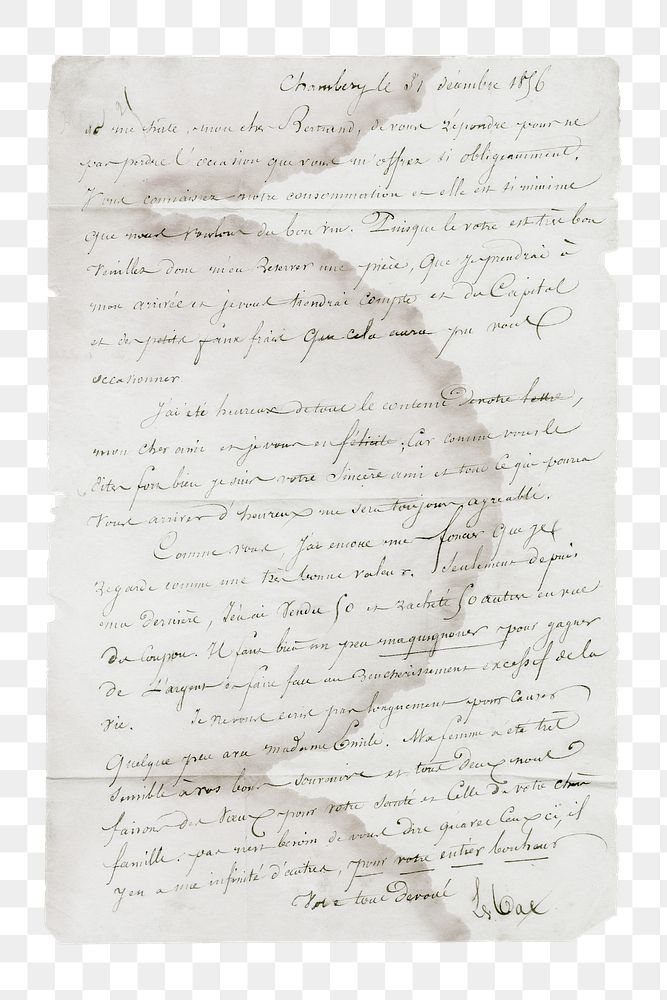 Chambery le 31 décembre 1856
me hâte, mon cher Bertrand, de vous repondre pour ne
pas perdre l'occasion que vous m'offrez si obligeamment.
Vous connaissez notre consommation et elle est si minime
que nous voulons du bon vin. Puisque le votre est très bon
veuillez donc m'en reserver une pièce, que je prendrai à
mon arrivée et je vous tiendrai compte et du Capital
et des petits faux frais que cela aura pu vous
occasionner
J'ai été heureux de tout le contenu de votre lettre,
mon cher ami et je vous en félicite; Car comme vous le
dites fort bien je suis votre sincère ami et tout ce que pourra
vous arriver d'heureux me sera toujours agreable.
Comme vous, j'ai encore me foncier que je
regarde comme une très bonne valeur. Seulement depuis
ma dernière, j'en ai vendu 50 et racheté 50 autres en vue
du Coupon. Il faut bien un peu maquignoner pour gagner
de l'argent et faire face au rencherissement excessif de la
vie. Je ne vous ecris pas longuement pour causer
quelque peu avec madame Emile. Ma femme a été très
sensible à vos bons souvenirs et tous deux nous
faisons des voeux pour votre santé et celle de votre chère
famille. pas n'est besoin de vous dire qu'avec ceux ci, il
y en a une infinité d'autres, pour votre entier bonheur
Votre tout devoué